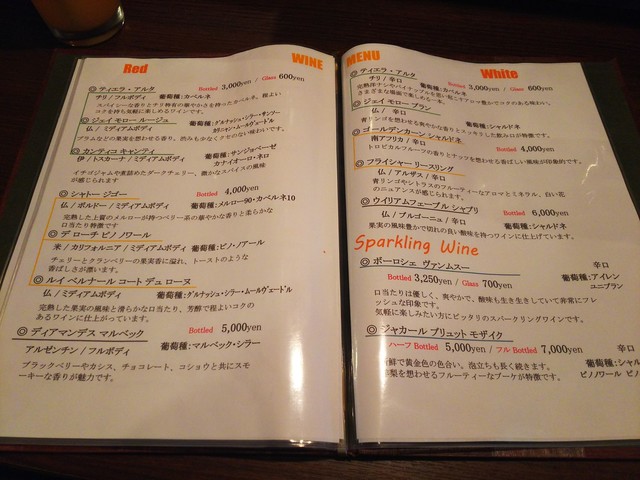 Red WINE
◎ ティエラ・アルタ Bottled 3,000yen / Glass 600yen
チリ/フルボディ 葡萄種:カベルネ
スパイシーな香りとチリ特有の華やかさを持ったカベルネ。程よい
コクを持ち気軽に楽しめるワインです。
◎ ジェイ モロー ルージュ 葡萄種:グルナッシュ・シラー・サンソー
仏/ミディアムボディ カリニャン・ムールヴェードル
プラムなどの果実を思わせる香り、渋みも少なくクセのない味わいです。
◎ カンティコ キャンティ 葡萄種:サンジョベーゼ
伊/トスカーナ/ミディアムボディ カナイオーロ・ネロ
イチゴジャムや煮詰めたダークチェリー、微かなスパイスの風味
が感じられます
◎ シャトー ジゴー Bottled 4,000yen
仏/ボルドー/ミディアムボディ 葡萄種:メルロー90・カベルネ10
完熟した上質のメルローが持つベリー系の華やかな香りと柔らかな
口当たり特徴です
◎ デ ローチ ピノノワール
米/カリフォルニア/ミディアムボディ 葡萄種:ピノ・ノアール
チェリーとクランベリーの果実香に溢れ、トーストのような
香ばしさが漂います。
◎ ルイ ベルナール コート デュ ローヌ
仏/ミディアムボディ 葡萄種:グルナッシュ・シラー・ムールヴェードル
完熟した果実の風味と滑らかな口当たり、芳醇で程よいコクの
あるワインに仕上がっています。
◎ ディアマンデス マルベック Bottled 5,000yen
アルゼンチン/フルボディ 葡萄種:マルベック・シラー
ブラックベリーやカシス、チョコレート、コショウと共にスモ
ーキーな香りが魅力です。
MENU White
◎ ティエラ・アルタ Bottled 3,000yen / Glass 600yen
チリ/辛口
◎ ジェイ モロー ブラン
仏/辛口 葡萄種:シャルドネ
青リンゴを想わせる爽やかな香りとスッキリした飲み口が特徴です。
◎ ゴールデンカーン シャルドネ Bottled 4,000yen
南アフリカ/辛口
トロピカルフルーツの香りとナッツを想わせる香ばしい風味が印象的です。
◎ フライシャー リースリング
仏/アルザス/辛口
青リンゴやシトラスのフルーティーなアロマとミネラル、白い花
のニュアンスが感じます。
◎ ウイリアムフェーブル シャブリ Bottled 6,000yen
仏/ブルゴーニュ/辛口 葡萄種:シャルドネ
果実の風味豊かで切れの良い酸味を持つワインに仕上げています。
Sparkling Wine
◎ ボーロシェ ヴァンムスー 辛口
Bottled 3,250yen / Glass 700yen 葡萄種:アイレン
ユニブラン
口当たりは優しく、爽やかで、酸味も生き生きしていて非常にフレ
ッシュな印象です。
気軽に楽しみたい方にピッタリのスパークリングワインです。
◎ ジャカール ブリュット モザイク 辛口
ハーフ Bottled 5,000yen / フル Bottled 7,000yen 葡萄種:シャル
新鮮で黄金色の色合い。泡立ちも長く続きます。 ピノワール ピノ
梨を想わせるフルーティーなブーケが特徴です。